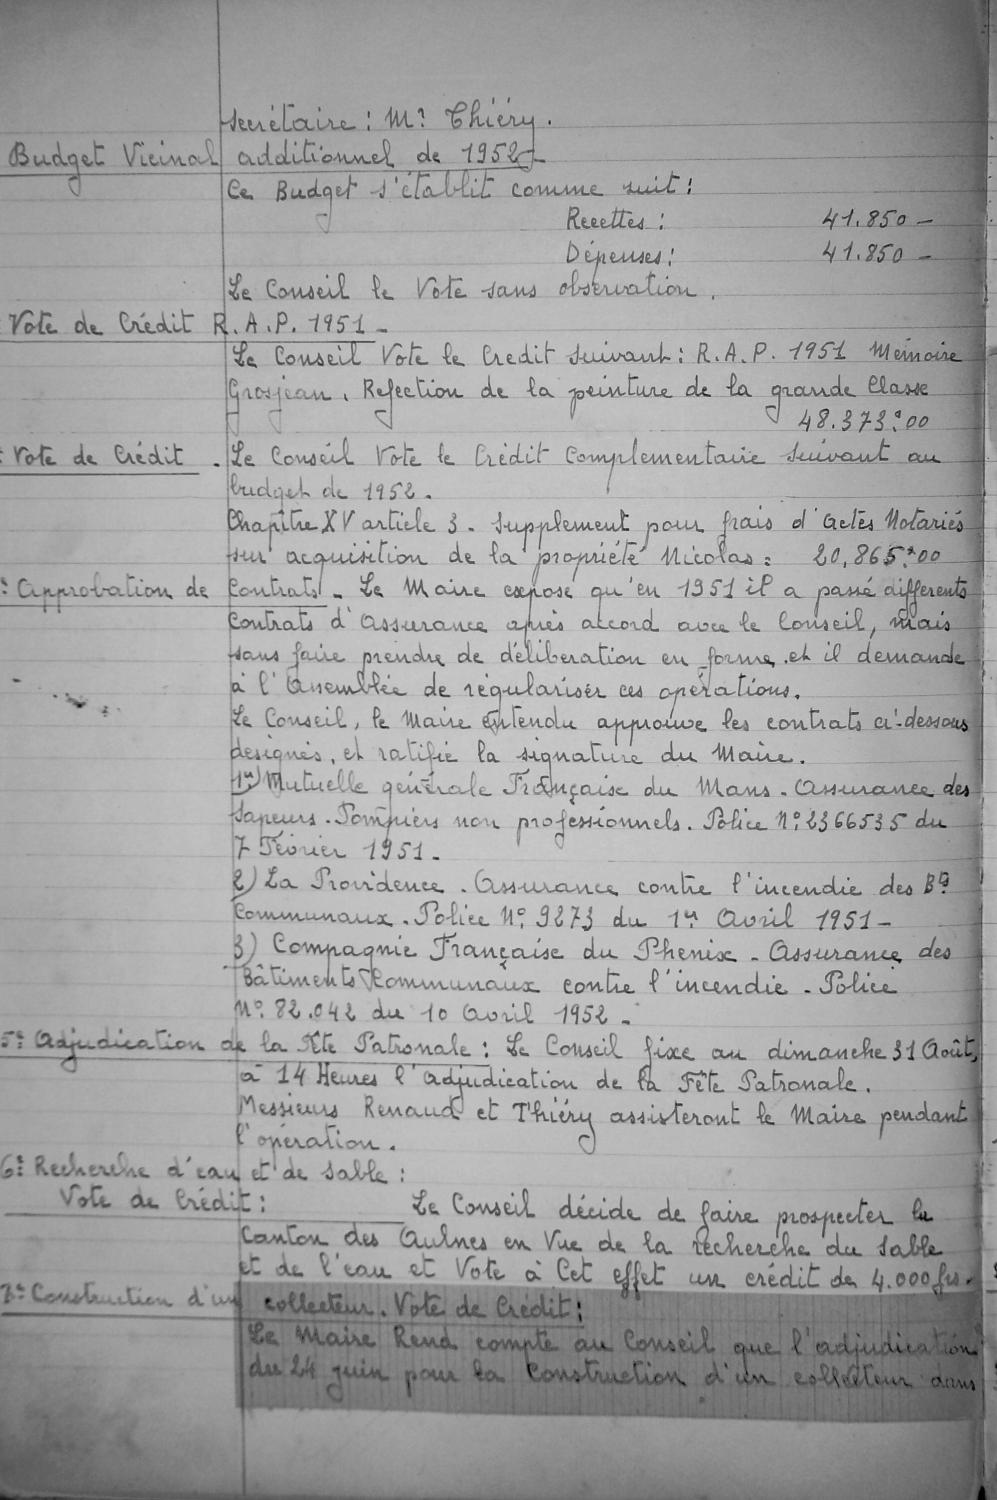 secrétaire : Mr Thiéry.
Budget Vicinal additionnel de 1952 -
Ce Budget s'établit comme suit :
Recettes : 41.850 -
Dépenses : 41.850 -
Le Conseil le Vote sans observation.
Vote de Crédit R.A.P. 1951 -
Le Conseil Vote le Credit suivant : R.A.P. 1951 Mémoire
Grosjean. Refection de la peinture de la grande Classe
48.373.00
Vote de Crédit . Le Conseil Vote le Crédit Complementaire suivant au
budget de 1952.
Chapître XV article 3. Supplement pour frais d'actes Notariés
sur acquisition de la propriété Nicolas : 20,865.00
: Approbation de Contrats - Le Maire expose qu'en 1951 il a passé différents
Contrats d'assurance après accord avec le Conseil, mais
sans faire prendre de déliberation en forme et il demande
à l'Assemblée de régulariser ces opérations.
Le Conseil, le Maire entendu approuve les contrats ci-dessous
designés, et ratifie la signature du Maire.
1er) Mutuelle générale Française du Mans - Assurance des
Sapeurs-Pompiers non professionnels. Police N° 2366535 du
7 Février 1951 -
2) La Providence . Assurance contre l'incendie des Bts
Communaux. Police N° 9273 du 1er Avril 1951 -
3) Compagnie Française du Phenix - Assurance des
Bâtiments Communaux contre l'incendie - Police
N° 82.042 du 10 Avril 1952 -
5° Adjudication de la Fête Patronale : Le Conseil fixe au dimanche 31 Août,
à 14 Heures l'adjudication de la Fête Patronale.
Messieurs Renaud et Thiéry assisteront le Maire pendant
l'opération.
6° Recherche d'eau et de sable :
Vote de Crédit : Le Conseil décide de faire prospecter le
Canton des Aulnes en Vue de la recherche du Sable
et de l'eau et Vote à Cet effet un crédit de 4.000 frs.
7° Construction d'un collecteur. Vote de Crédit :
Le Maire Rend compte au Conseil que l'adjudication
du 24 juin pour la Construction d'un collecteur dans